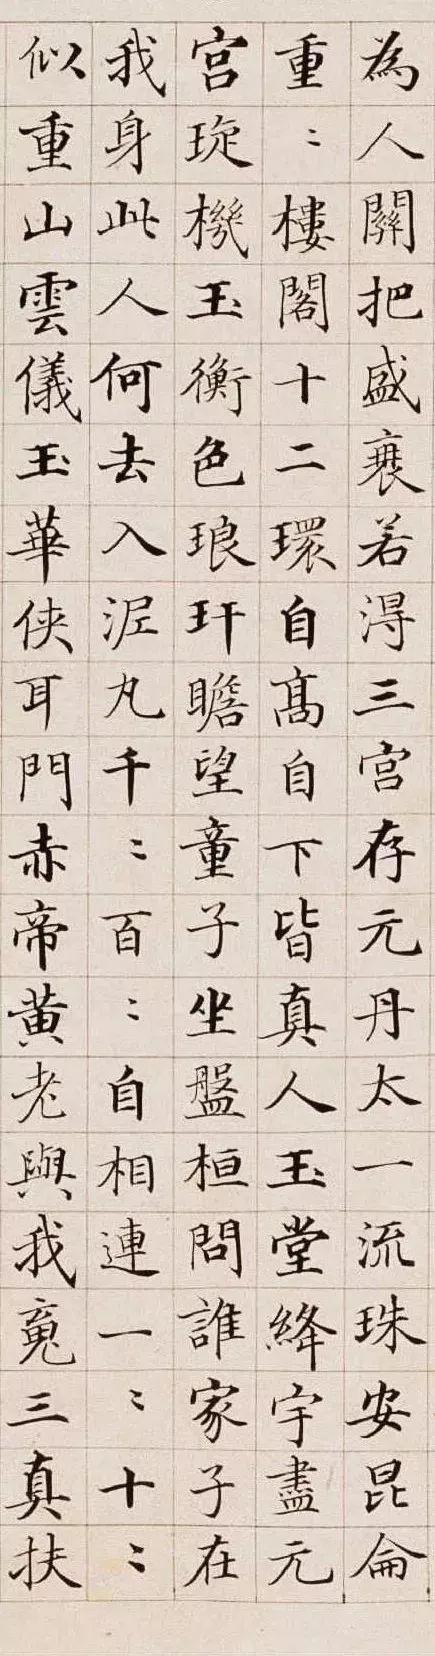 為人關把盛衰若淂三宮存元丹太一流珠安昆侖
重〻樓閣十二環自髙自下皆真人玉堂絳宇盡元
宮琁機玉衡色琅玕瞻望童子坐盤桓問誰家子在
我身此人何去入泥丸千〻百〻自相連一〻十〻
似重山雲儀玉華俠耳門赤帝黃老與我䰟三真扶